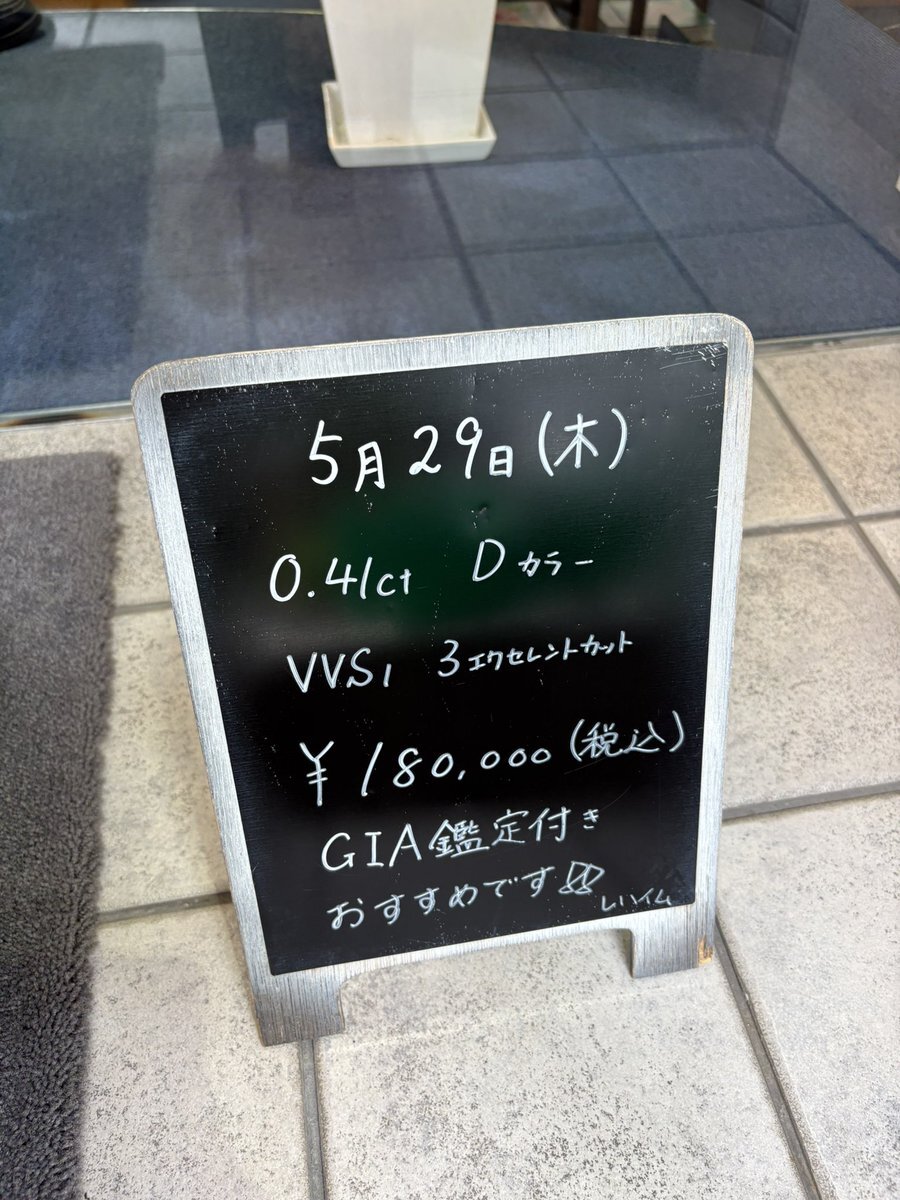 5月29日(木)
0.41ct Dカラー
VVS1 3エクセレントカット
¥180,000(税込)
GIA鑑定付き
おすすめです
レハイム